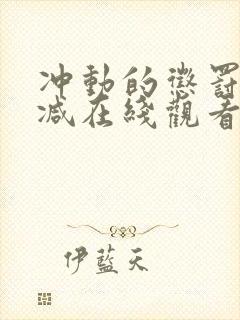 冲動的懲罰
减在綫觀看
伊藍天